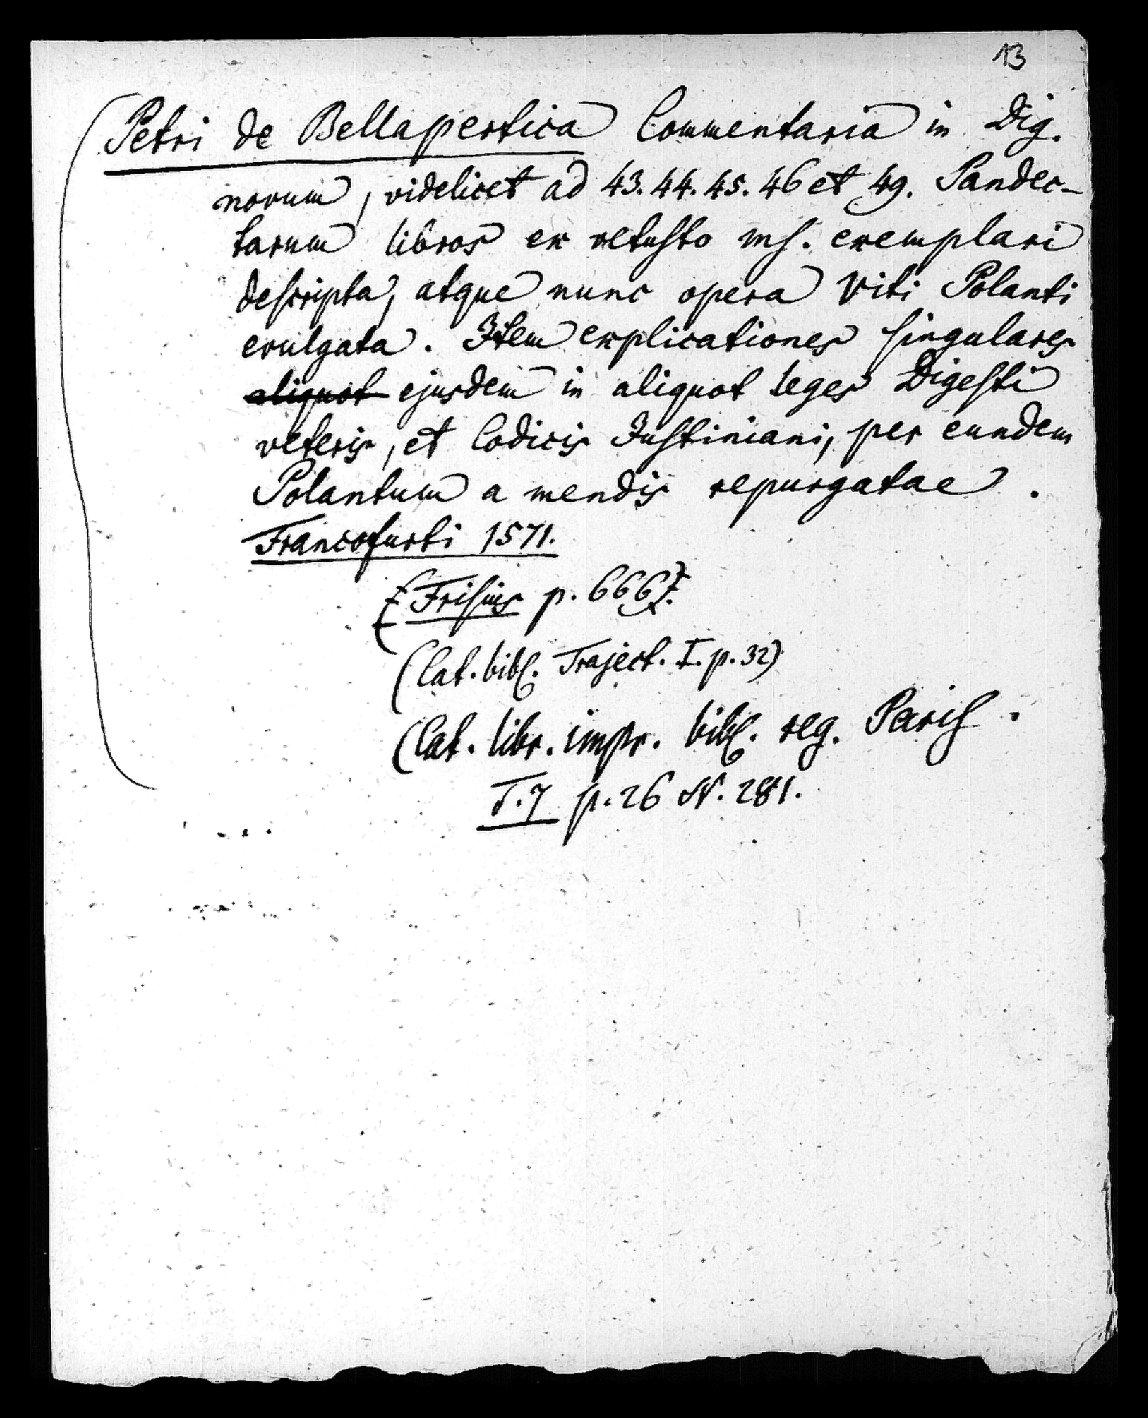 13
Petri de Bellapertica Commentaria in Dig.
novum, videlicet ad 43. 44. 45. 46 et 49. Pandec-
tarum libros ex vetusto ms. exemplari
descripta, atque nunc opera Viti Polanti
evulgata. Item explicationes singulares
aliquot ejusdem in aliquot leges Digesti
veteris, et Codicis Justiniani, per eundem
Polantum a mendis repurgatae.
Francofurti 1571.
(Frisius p. 666).
(Cat. bibl. Traject. I. p. 32)
(Cat. libr. impr. bibl. reg. Paris.
T. 7 p. 26 N. 281.